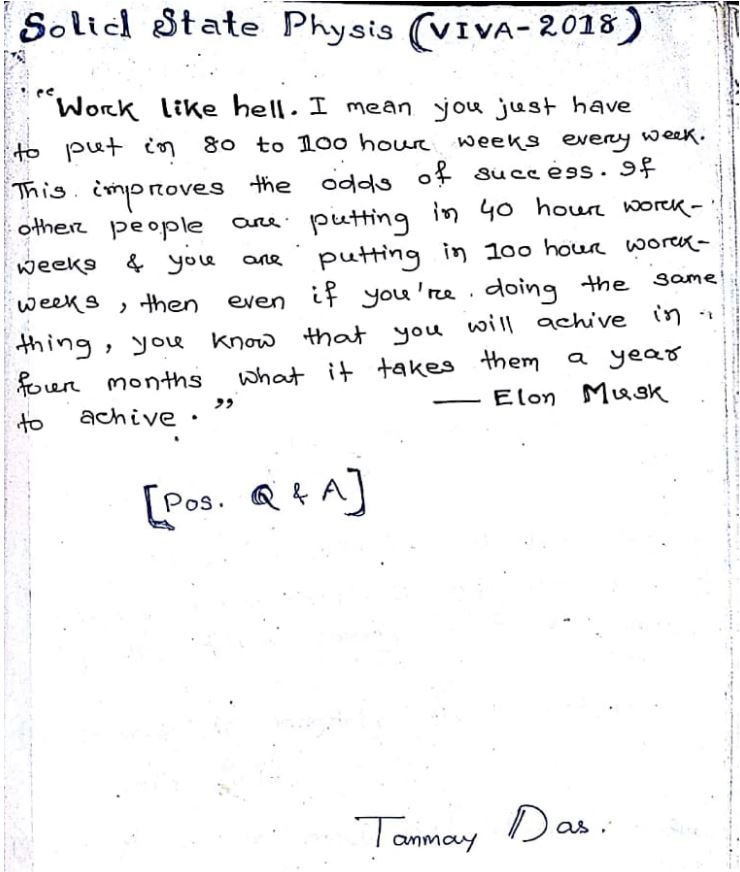 Solid State Physis (VIVA-2018)
"Work like hell. I mean you just have
to put in 80 to 100 hour weeks every week.
This improves the odds of success. If
other people are putting in 40 hour work-
weeks & you are putting in 100 hour work-
weeks, then even if you're doing the same
thing, you know that you will achive in
four months what it takes them a year
to achive."
— Elon Musk
[Pos. Q & A]
Tanmay Das.